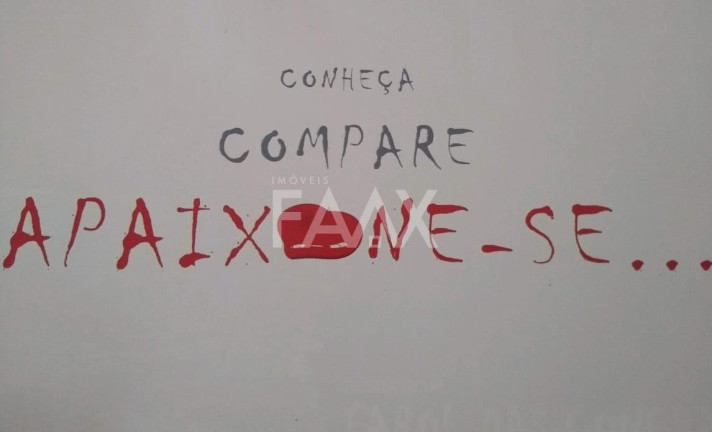 CONHEÇA
COMPARE
IMÓVEIS
FAAX
APAIXONE-SE...